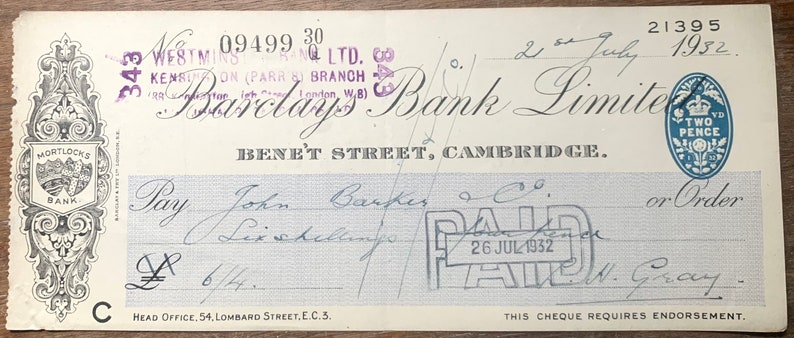 No 09499 30/Q
21395
343
WESTMINSTER BANK LTD.
KENSINGTON (PARR'S) BRANCH
High Street, London, W.8)
343
21st July 1932.
Barclays Bank Limited
BENE'T STREET, CAMBRIDGE.
TWO PENCE
MORTLOCKS
BANK.
BARCLAY & FRY LTD LONDON, S.E.
Pay John Barker & Co or Order
Six shillings & fourpence
PAID
26 JUL 1932
PAID
£ 6/4.
H. Gray.
C
HEAD OFFICE, 54, LOMBARD STREET, E.C.3.
THIS CHEQUE REQUIRES ENDORSEMENT.